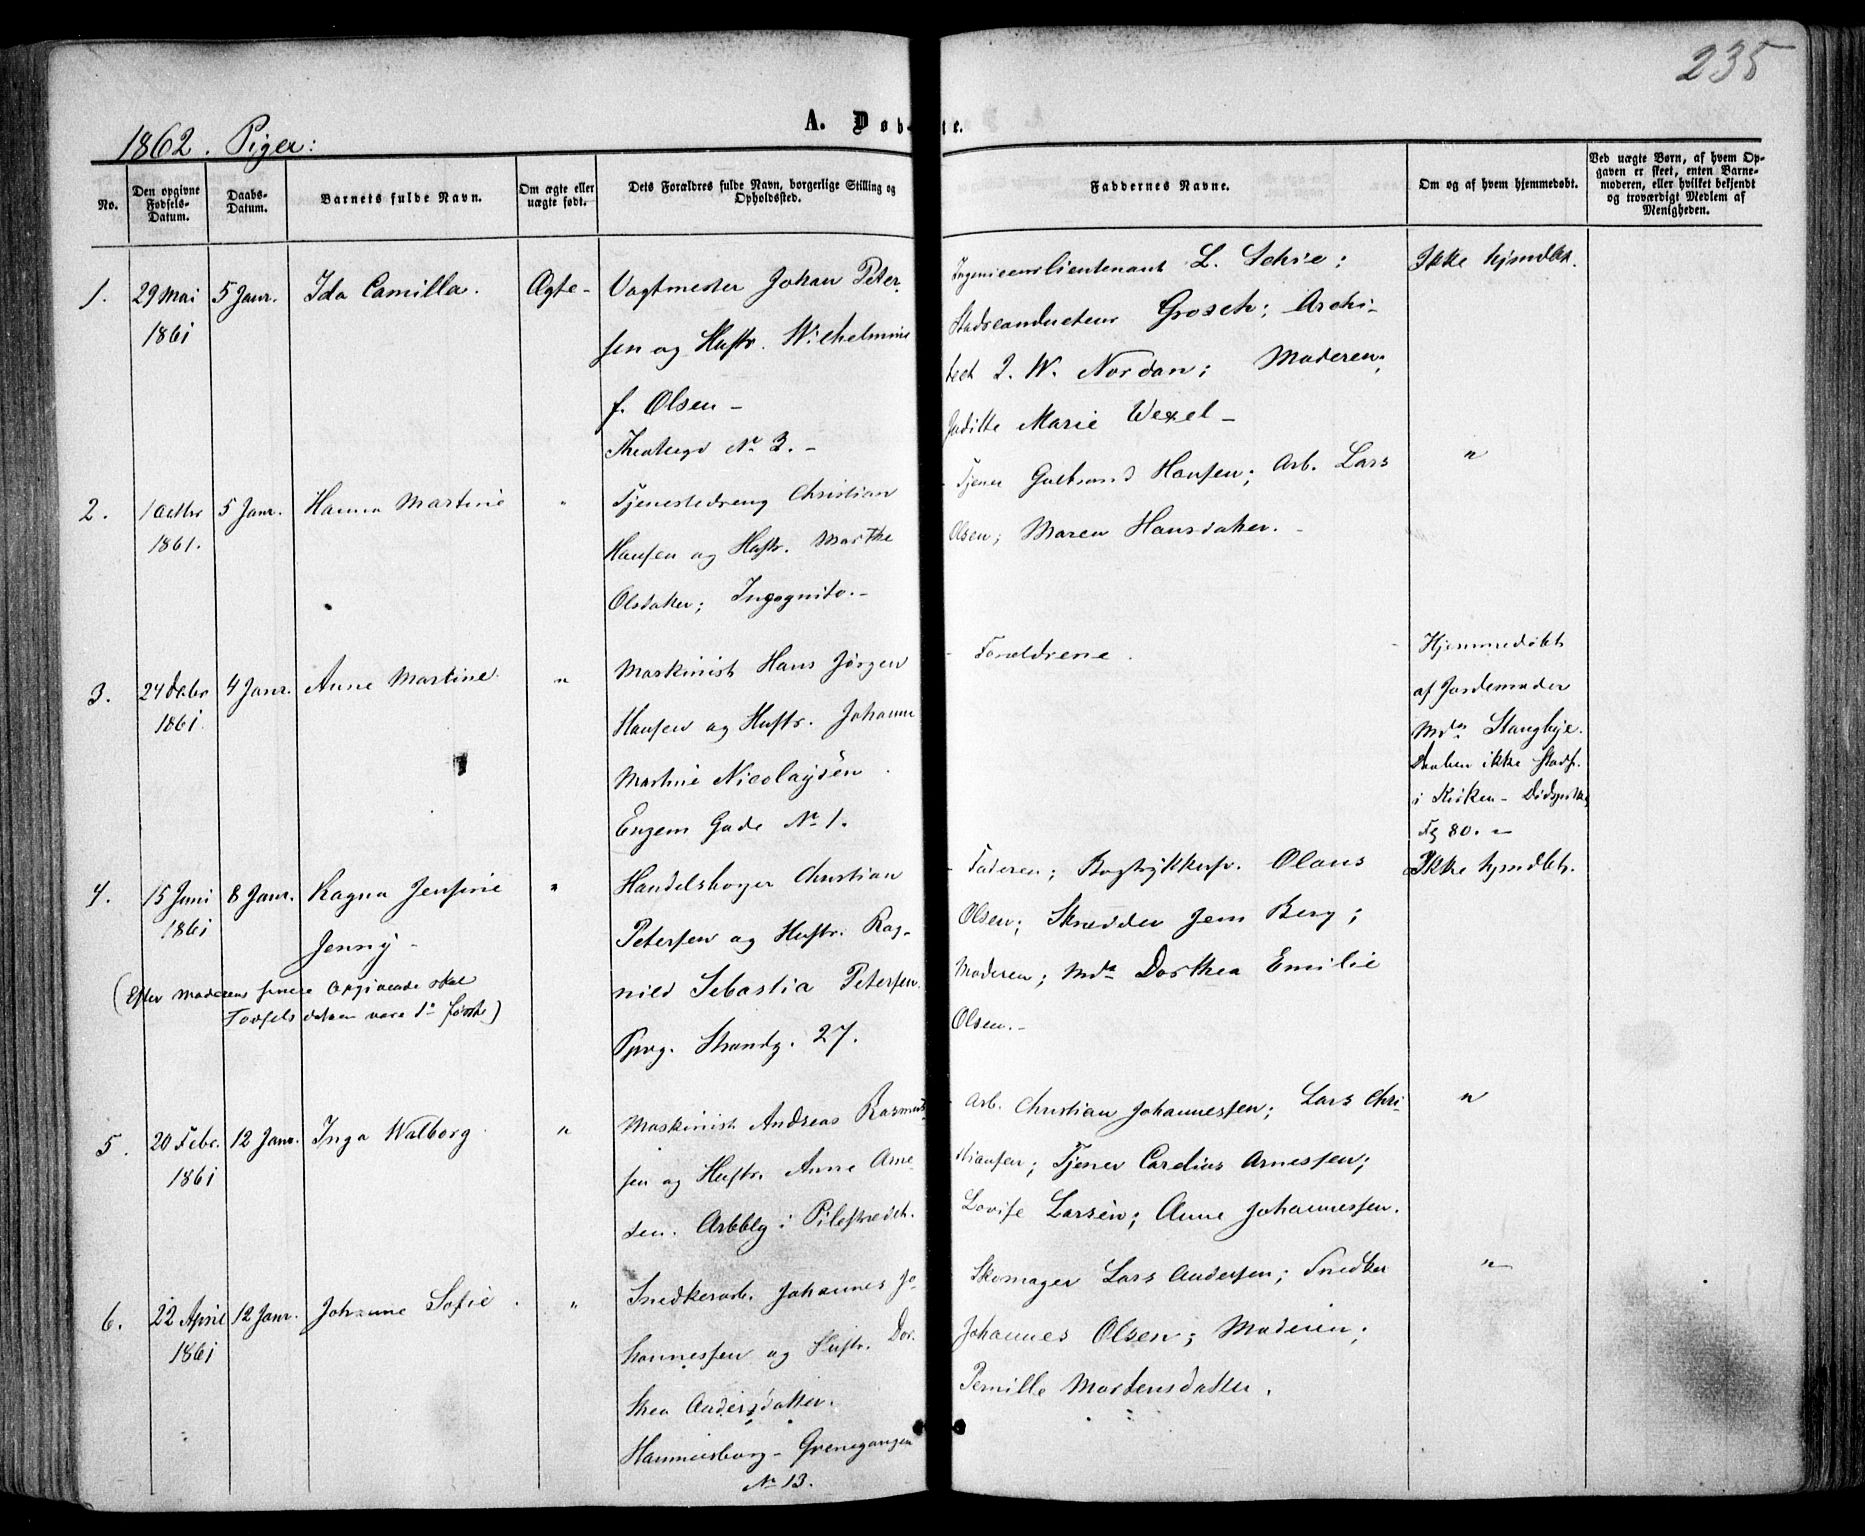 235
A. Døbte.
1862. Piger:
No.
Den opgivne Fødsels-Datum.
Daabs-Datum.
Barnets fulde Navn.
Om ægte eller uægte født.
Dets Forældres fulde Navn, borgerlige Stilling og Opholdssted.
Faddernes Navne.
Om og af hvem hjemmedøbt.
Ved uægte Børn, af hvem Opgaven er skeet, enten Barnemoderen, eller hvilket bekjendt og troværdigt Medlem af Menigheden.
1. 29 Mai 1861
5 Janr.
Ida Camilla.
Ægte-
Vagtmester Johan Peter
sen og Hustr. Wilhelmine
f. Olsen -
Theaterg No 3. -
Ingenieurlieutenant L. Schie;
Stadsconducteur Grosch; Archi-
tect J. W. Nordan; Moderen;
Juditte Marie Wexel -
Ikke hjmdbt.
2. 1 Octbr 1861.
5 Janr.
Hanna Martine
"
Tjenestedreng Christian
Hansen og Hustr. Marthe
Olsdatter; Incognito. -
Tjener Gulbrand Hansen; Arb. Lars
Olsen; Maren Hansdatter. -
"
3. 24 Decbr 1861.
4 Janr.
Anne Martine.
"
Maskinist Hans Jørgen
Hansen og Hustr. Johanne
Martine Nicolaysen.
Engens Gade No 1.
Forældrene.
Hjemmedøbt
af Jordemoder
Mda Stanghje.
Daaben ikke stadf.
i Kirken -
Fg 80. -
4. 15 Juni 1861
8 Janr.
Ragna Jensine
Jenny -
(Efter Moderens senere Opgivende skal
Fødselsdatoen være 1ste først)
"
Handelsbøger Christian
Petersen og Hustr. Rag-
nild Sebastia Petersen.
Pprvg. Strandg. 27.
Faderen; Bogtrykkersv. Olaus
Olsen; Skrædder Jens Berg;
Moderen; Mda Dorthea Emilie
Olsen. -
Ikke hjmdbt.
5. 20 Febr. 1861
12 Janr.
Inga Walborg
"
Maskinist Andreas Rasmus
sen og Hustr. Anne Arne-
sen. Arbblg i Pilestrædet.
Arb. Christian Johannessen; Lars Chri-
stiansen; Tjener Carelius Arnessen;
Lovise Larsen; Anne Johannessen.
"
6. 22 April 1861
12 Janr.
Johanne Sofie.
"
Snedkerarb. Johannes Jo-
hannessen og Hustr. Dor-
thea Andersdatter.
Hammersborg - Grænsegangen
No 13.
Skomager Lars Andersen; Snedker
Johannes Olsen; Moderen;
Pernille Mortensdatter.
"